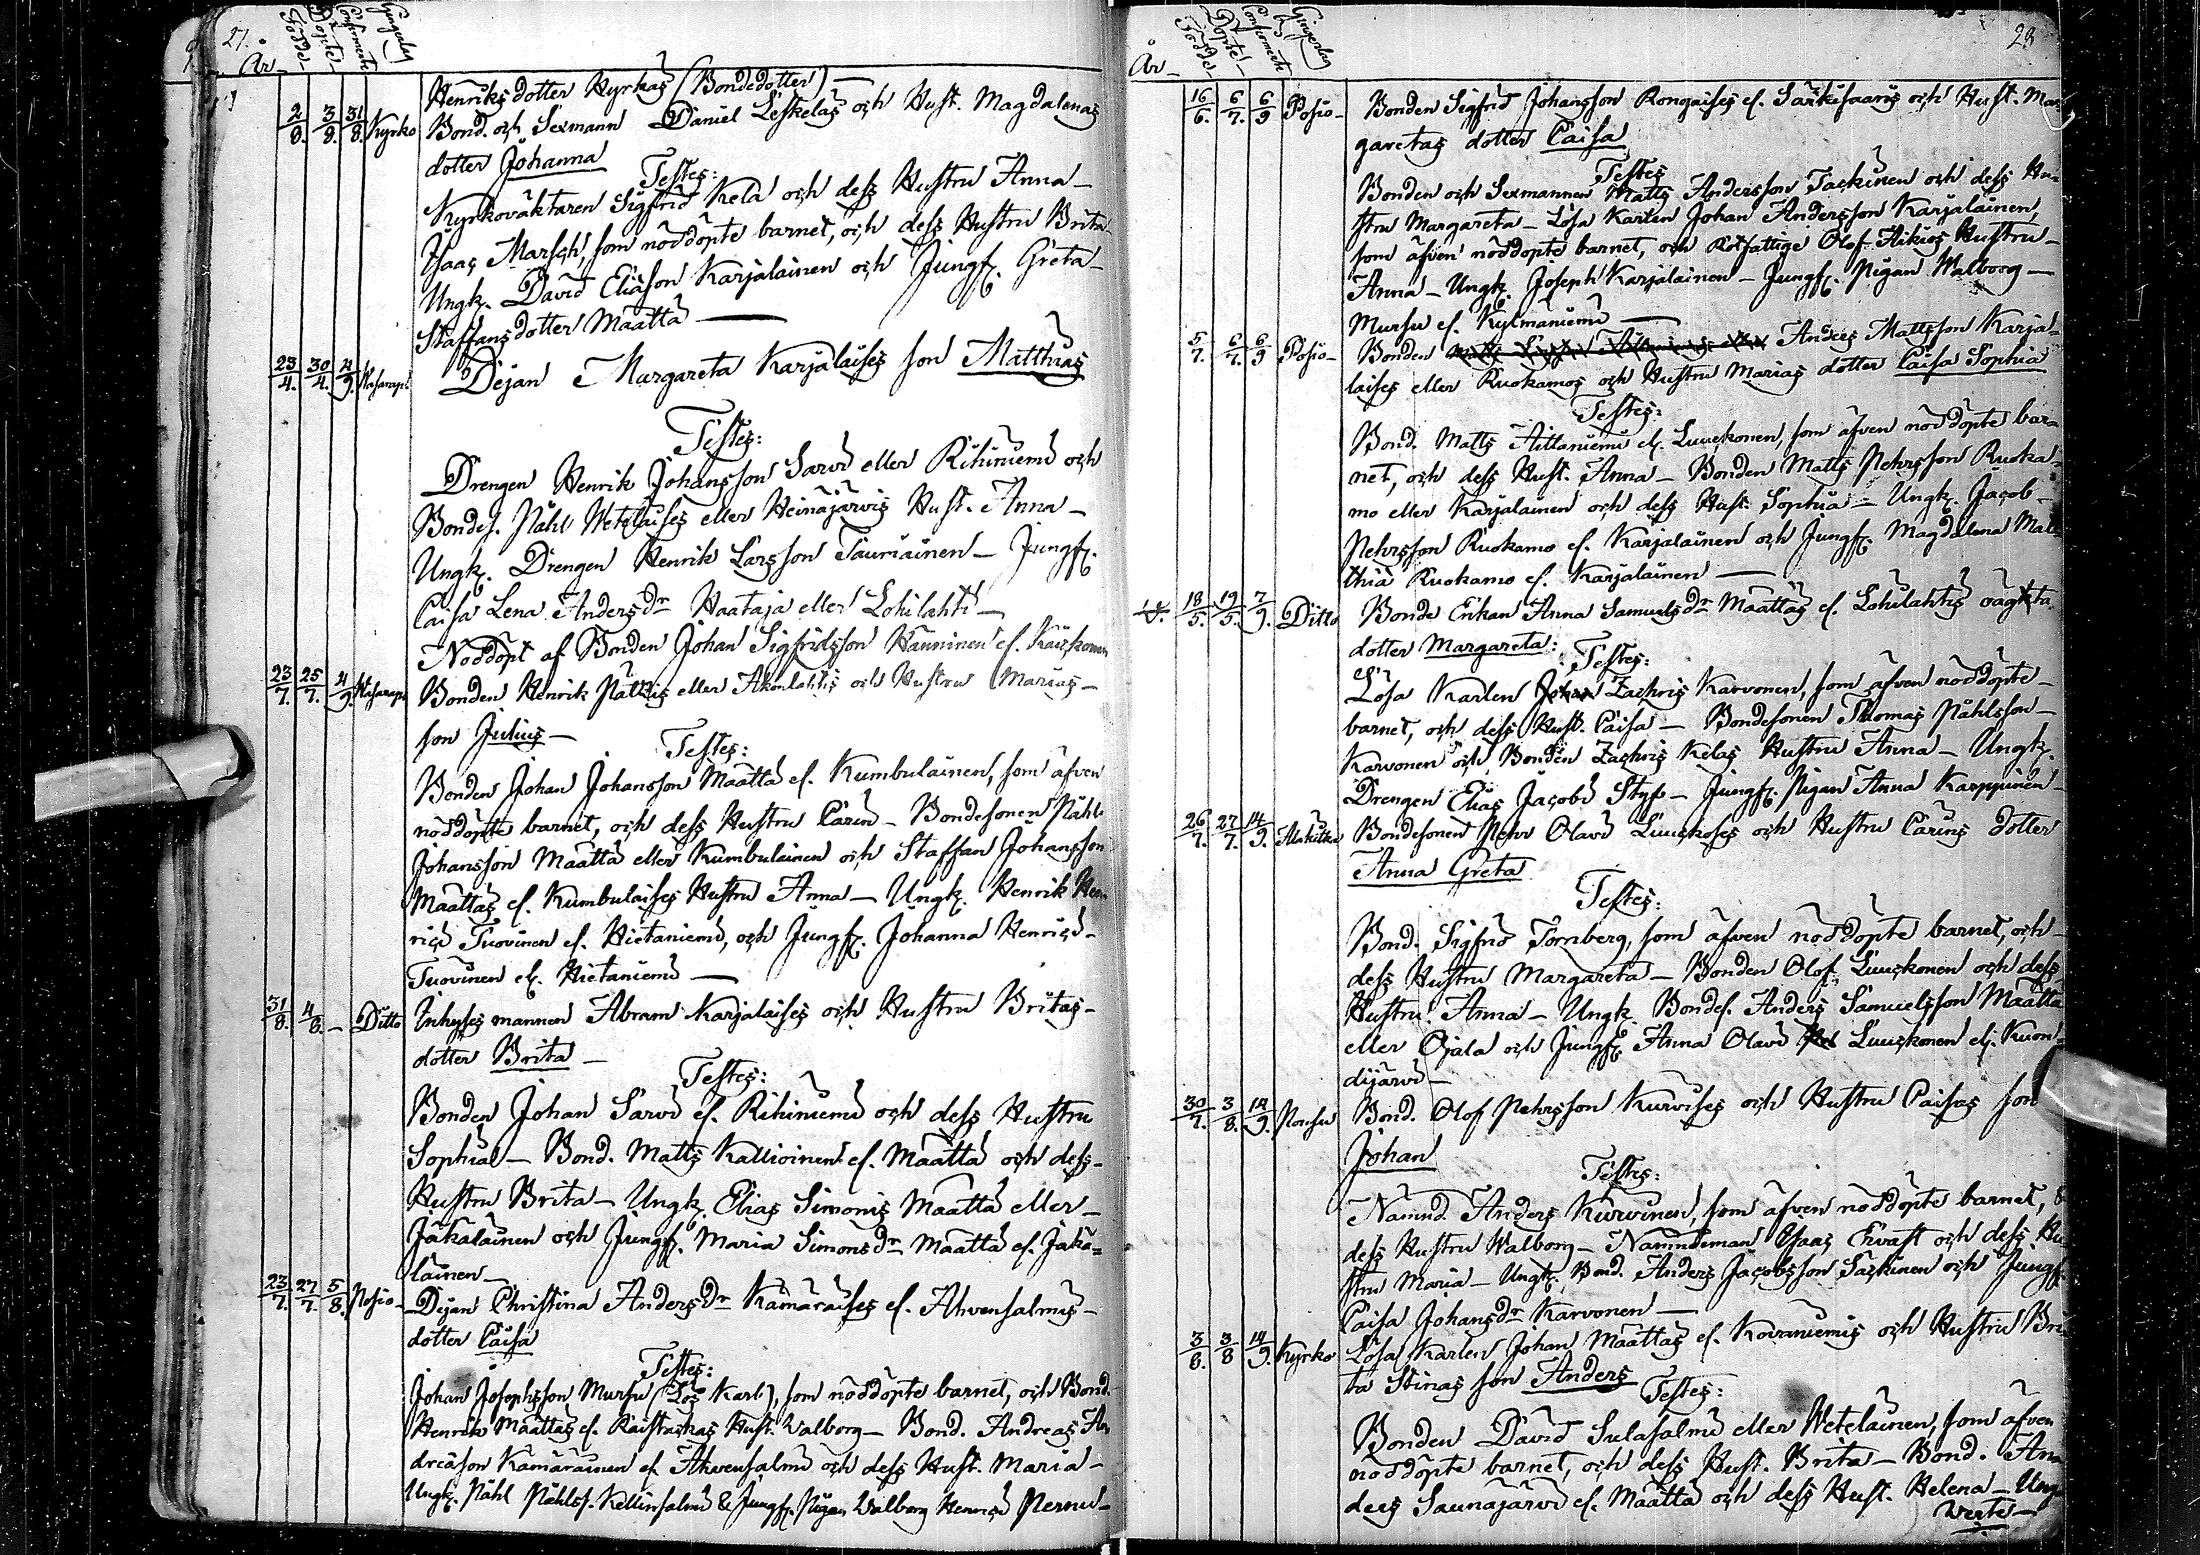 27.
År
Födde
Döpte
Confirmerte
Gingerlag
Henriks dotter Hyrkäs (Bondedotter) —
2/8. 3/8. 31/8. Kyrko Bond. och Sexmann Daniel Leskeläs och Hust. Magdalenas
dotter Johanna
Testes:
Kyrkoväktaren Sigfrid Kela och dess Hustru Anna —
Isaac Marsch, som nöddöpte barnet, och dess Hustru Brita
Ungk. David Eliasson Karjalainen och Jungf. Greta
Staffansdotter Määttä —
23/4. 30/4. 4/9. Dejan Margareta Karjalaises son Matthias
Testes:
Drengen Henrik Johansson Sarvi eller Riihiniemi och
Bondes. Påhl Wetelaises eller Heinäjärvis Hust. Anna —
Ungk. Drengen Henrik Larsson Tauriainen — Jungf.
Caisa Lena Andersdr Haataja eller Lohilahti —
Nöddöpt af Bonden Johan Sigfridsson Hänninen el.
23/7. 25/7. 4/9. Bonden Henrik eller Akonlahtis och Hustru Marias —
son Julius —
Testes:
Bonden Johan Johansson Määttä el. Kumbulainen, som äfven
nöddöpte barnet, och dess Hustru Carin — Bondesonen Påhl
Johansson Määttä eller Kumbulainen och Staffan Johansson
Määttäs el. Kumbulaises Hustru Anna — Ungk. Henrik Hen-
rici Tuovinen el. Hietaniemi, och Jungf. Johanna Henrici
Tuovinen el. Hietaniemi —
31/8. 4/8. — Ditto Inhyses mannen Abram Karjalaises och Hustru Britas —
dotter Brita —
Testes:
Bonden Johan Sarvi el. Riihiniemi och dess Hustru
Sophia — Bond. Matts Kallioinen el. Määttä och dess
Hustru Brita — Ungk. Elias Simonis Määttä eller
Jäkäläinen och Jungf. Maria Simonsdr Määttä el. Jäkä-
läinen —
23/7. 27/7. 5/8. Posio Dejan Christina Andersdr Kämäräises el. Ahvensalmis —
dotter Caisa
Testes:
Johan Josephsson Mursu (Lös Karl), som nöddöpte barnet, och Bond.
Henrik Määttäs el. Hust. Walborg — Bond. Andreas An
dreæson Kämäräinen el. Ahvensalmi och dess Hust. Maria —
Ungk. Påhl Påhlss. Kellinsalmi & Jungf. Pigan Walborg Henrici Pernu —
28
År
Födde
Döpte
Confirmerte
Gingerlag
16/6. 6/7. 6/9 Posio Bonden Sigfrid Johansson Rongaises el. Särkisaaris och Hust. Mar
garetas dotter Caisa
Testes
Bonden och Sexmannen Matts Andersson Tackinen och dess Hu-
stru Margareta — Lösa Karlen Johan Andersson Karjalainen,
som äfven nöddöpte barnet, och Rotfattige Olof Aikios Hustru
Anna — Ungk. Joseph Karjalainen — Jungf. Pigan Walborg —
Mursu el. Kylmäniemi —
5/7. 6/7. 6/9 Posio Bonden Anders Mattsson Karja-
laises eller Ruokamos och Hustru Marias dotter Caisa Sophia
Testes:
Bond. Matts Aittaniemi el. Luuskonen, som äfven nöddöpte bar-
net, och dess Hust. Anna — Bonden Matts Pehrsson Ruoka-
mo eller Karjalainen och dess Hust. Sophia — Ungk. Jacob
Pehrsson Ruokamo el. Karjalainen och Jungf. Magdalena Mat
thiæ Ruokamo el. Karjalainen —
18/5. 19/5. 7/9. Ditto Bonde Enkan Anna Samuelsdr Määttäs el. Lohilahtis oägta
dotter Margareta:
Testes:
Lösa Karlen Johan Zachris Karvonen, som äfven nöddöpte
barnet, och dess Hust. Caisa — Bondesonen Thomas Påhlsson
Karvonen och Bonden Zachris Kelas Hustru Anna — Ungk.
Drengen Elias Jacobi Styf — Jungf. Pigan Anna Karppinen —
26/7. 27/7. 14/9. Alakitka Bondesonen Pehr Olavi Luuskoses och Hustru Carins dotter
Anna Greta
Testes:
Bond. Sigfrid Tornberg, som äfven nöddöpte barnet, och
dess Hustru Margareta — Bonden Olof Luuskonen och dess
Hustru Anna — Ungk. Bondes. Anders Samuelsson Määttä
eller Ojala och Jungf. Anna Olavi Luuskonen el. Kuon-
dijärvi —
30/7. 3/8. 14/9. Bond. Olof Pehrsson Kurvises och Hustru Caisas son
Johan
Testes:
Nämnd. Anders Kurvinen, som äfven nöddöpte barnet, &
dess Hustru Walborg — Nämndeman Isaac Chvast och dess Hu
stru Maria — Ungk. Bond. Anders Jacobsson Tackinen och Jungf.
Caisa Johansdr Karvonen —
3/8. 3/8 14/9. Kyrko Lösa Karlen Johan Määttäs el. Kovaniemis och Hustru Bri
ta Stinas son Anders
Testes:
Bonden David Sulasalmi eller Wetelainen, som äfven
nöddöpte barnet, och dess Hust. Brita — Bond. An
ders Saunajärvi el. Määttä och dess Hust. Helena — Ung
werte —